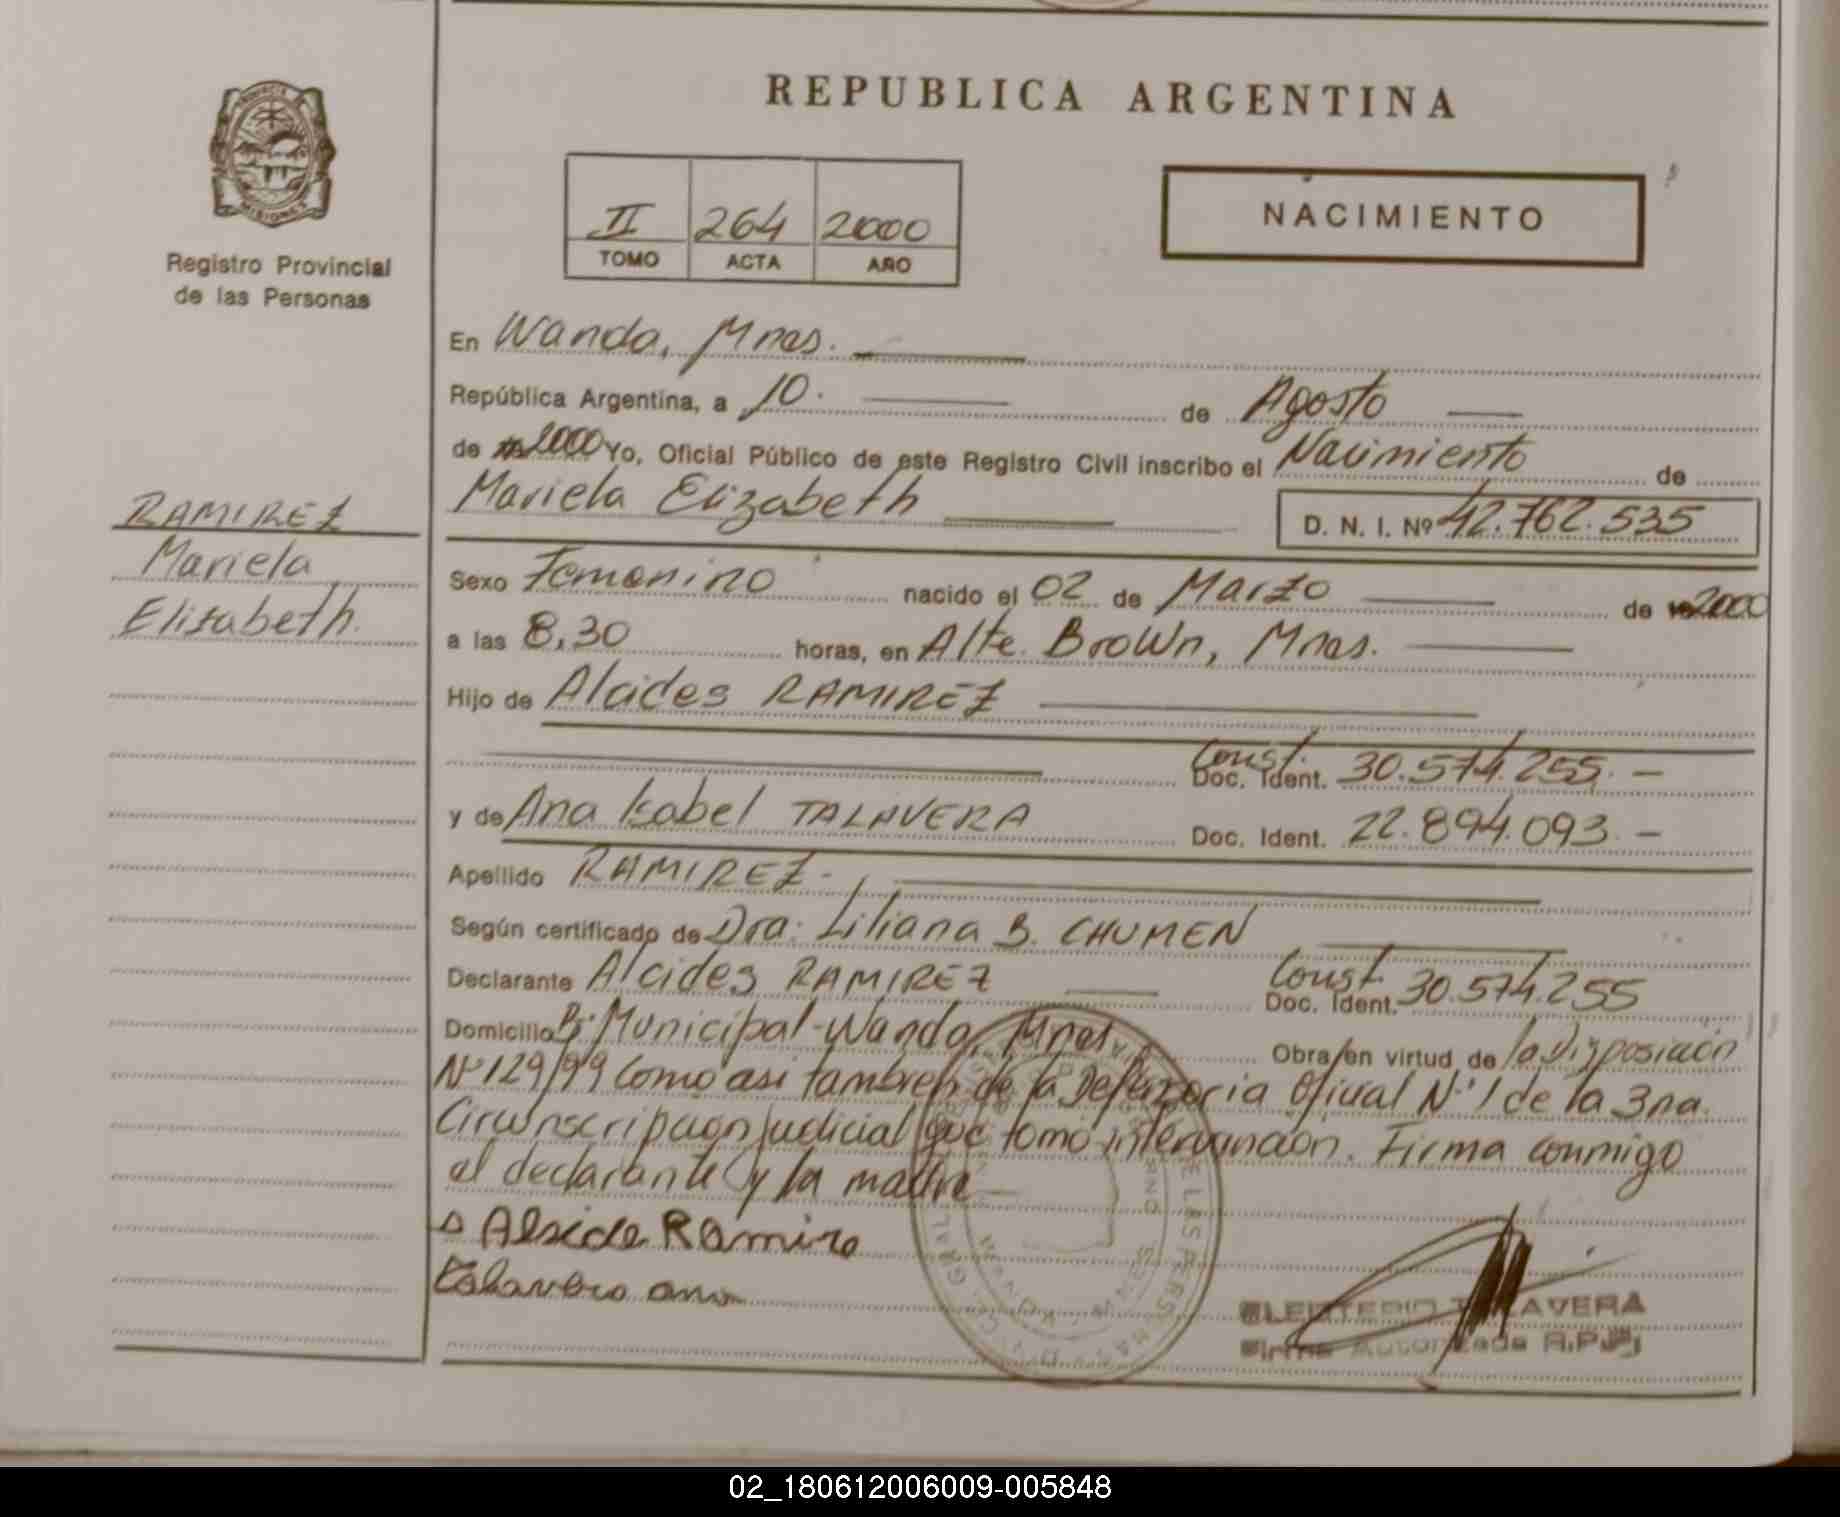 REPUBLICA ARGENTINA
II 264 2000
TOMO ACTA AÑO
NACIMIENTO
MISIONES
Registro Provincial
de las Personas
RAMIREZ
Mariela
Elizabeth.
En Wanda, Mnes.
República Argentina, a 10. de Agosto
de 2000 Yo, Oficial Público de este Registro Civil inscribo el Nacimiento de
Mariela Elizabeth D. N. I. Nº 42.762.535
Sexo Femenino nacido el 02 de Marzo de 2000
a las 8,30 horas, en Alte. Brown, Mnes.
Hijo de Alcides RAMIREZ
Const.
Doc. Ident. 30.574.255.-
y de Ana Isabel TALAVERA Doc. Ident. 22.894.093.-
Apellido RAMIREZ.-
Según certificado de Dra: Liliana B. CHUMEN
Declarante Alcides RAMIREZ Const. Doc. Ident. 30.574.255
Domicilio Bº Municipal-Wanda, Mnes. Obra en virtud de la Disposición
Nº 129/99 Como asi tambien de la Defensoria Oficial Nº 1 de la 3na.
Circunscripcion Judicial que tomó intervencion. Firma conmigo
el declarante y la madre
Alside Ramire
Talavera ana
ELEUTERIO TALAVERA
Firma Autorizada R.P.
02_180612006009-005848